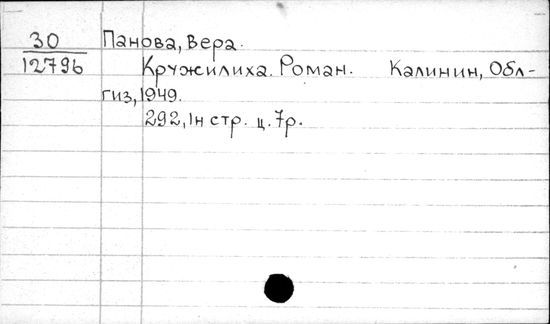 30 Панова, Вера.
12796 Кружилиха. Роман. Калинин, Обл-
гиз, 1949.
292, 1н стр. ц. 7р.